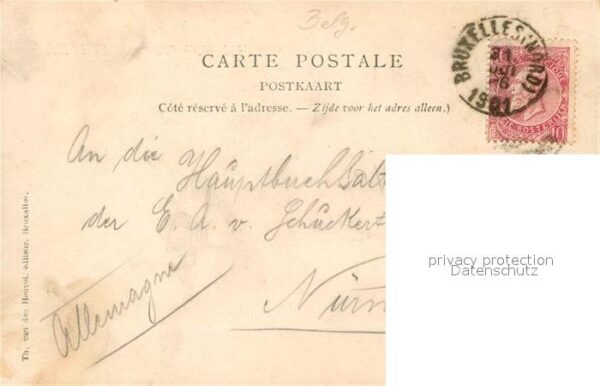 Belg.
CARTE POSTALE
POSTKAART
Côté réservé à l'adresse. — Zijde voor het adres alleen.)
BRUXELLES (NORD)
1901
10
An die
der E. A. v. Schuckert
Nürn
Allemagne
Th. van den Heuvel, éditeur, Bruxelles.
privacy protection
Datenschutz